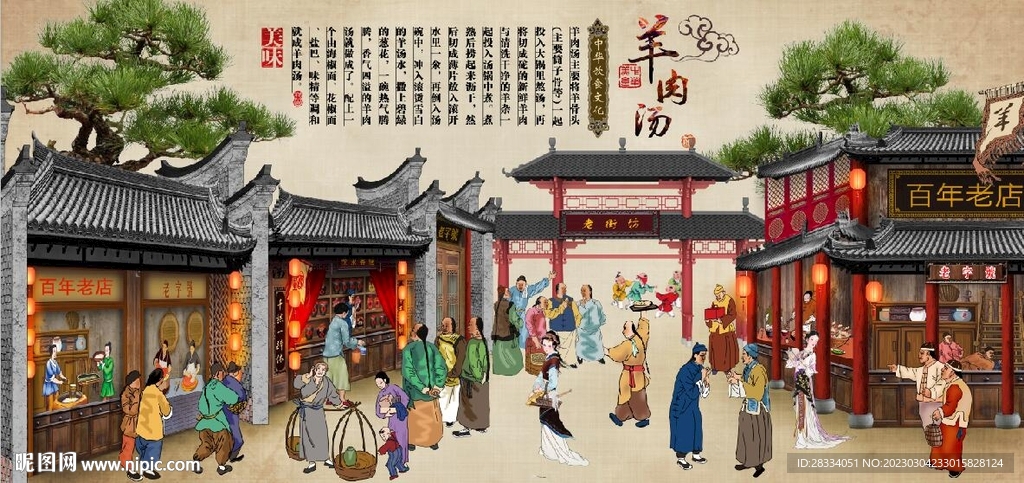 羊肉汤
中华饮食文化
美味
羊肉汤主要将羊骨头
（主要筒子骨等）一起
投入大锅里熬汤，再
将切成砣的新鲜羊肉
与清洗干净的羊杂一
起投入汤锅中煮。煮
熟后捞起来沥干，然
后切成薄片放入滚开
水里一汆，再倒入汤
碗中，冲入滚烫雪白
的羊汤水，撒上碧绿
的葱花，一碗热气腾
腾，香气四溢的羊肉
汤就做成了。配上一
个由海椒面、花椒面
、盐巴、味精等调和
就成羊肉汤。
羊
百年老店
老字號
老街坊
老字號
百年老店
老字號
昵图网 www.nipic.com
ID:28334051 NO:20230304233015828124